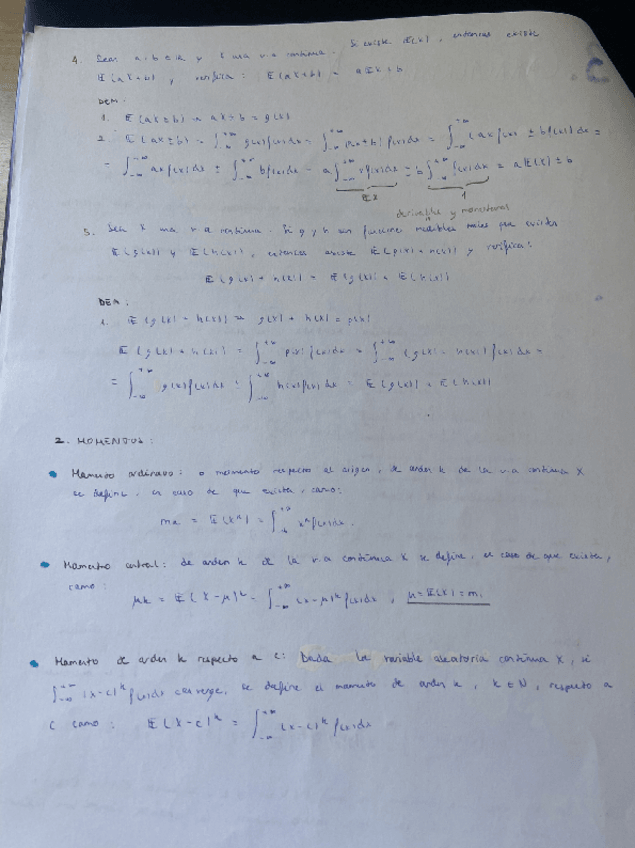 Si existe E(X), entonces existe
4. Sean a, b ∈ R y X una v.a continua.
E(aX+b), verifica: E(aX+b) = aEX+b
DEM:
1. E(aX±b) → aX±b = g(x)
2. E(aX±b) = ∫_{-∞}^{+∞} g(x)f(x)dx = ∫_{-∞}^{+∞} (ax±b) f(x)dx = ∫_{-∞}^{+∞} (ax f(x) ± b f(x)) dx =
= ∫_{-∞}^{+∞} ax f(x) dx ± ∫_{-∞}^{+∞} b f(x) dx = a ∫_{-∞}^{+∞} x f(x) dx ± b ∫_{-∞}^{+∞} f(x) dx = a E(X) ± b
EX 1
derivables y monótonas
5. Sea X una v.a continua. Si g y h son funciones medibles tales que existen
E(g(x)) y E(h(x)), entonces existe E(g(x)+h(x)) y verifica:
E(g(x)+h(x)) = E(g(x)) + E(h(x))
DEM:
1. E(g(x)+h(x)) → g(x)+h(x) = p(x)
E(g(x)+h(x)) = ∫_{-∞}^{+∞} p(x) f(x) dx = ∫_{-∞}^{+∞} (g(x)+h(x)) f(x) dx =
= ∫_{-∞}^{+∞} g(x) f(x) dx ± ∫_{-∞}^{+∞} h(x) f(x) dx = E(g(x)) + E(h(x))
2. MOMENTOS:
• Momento ordinario: o momento respecto al origen, de orden k de la v.a continua X
se define, en caso de que exista, como:
mk = E(X^k) = ∫_{-∞}^{+∞} x^k f(x) dx.
• Momento central: de orden k de la v.a continua X se define, en caso de que exista,
como: μk = E(X-μ)^k = ∫_{-∞}^{+∞} (x-μ)^k f(x) dx, μ = E(X) = m₁
• Momento de orden k respecto a c: Dada la variable aleatoria continua X, si
∫_{-∞}^{+∞} (x-c)^k f(x) dx converge, se define el momento de orden k, k ∈ N, respecto a
c como: E(X-c)^k = ∫_{-∞}^{+∞} (x-c)^k f(x) dx